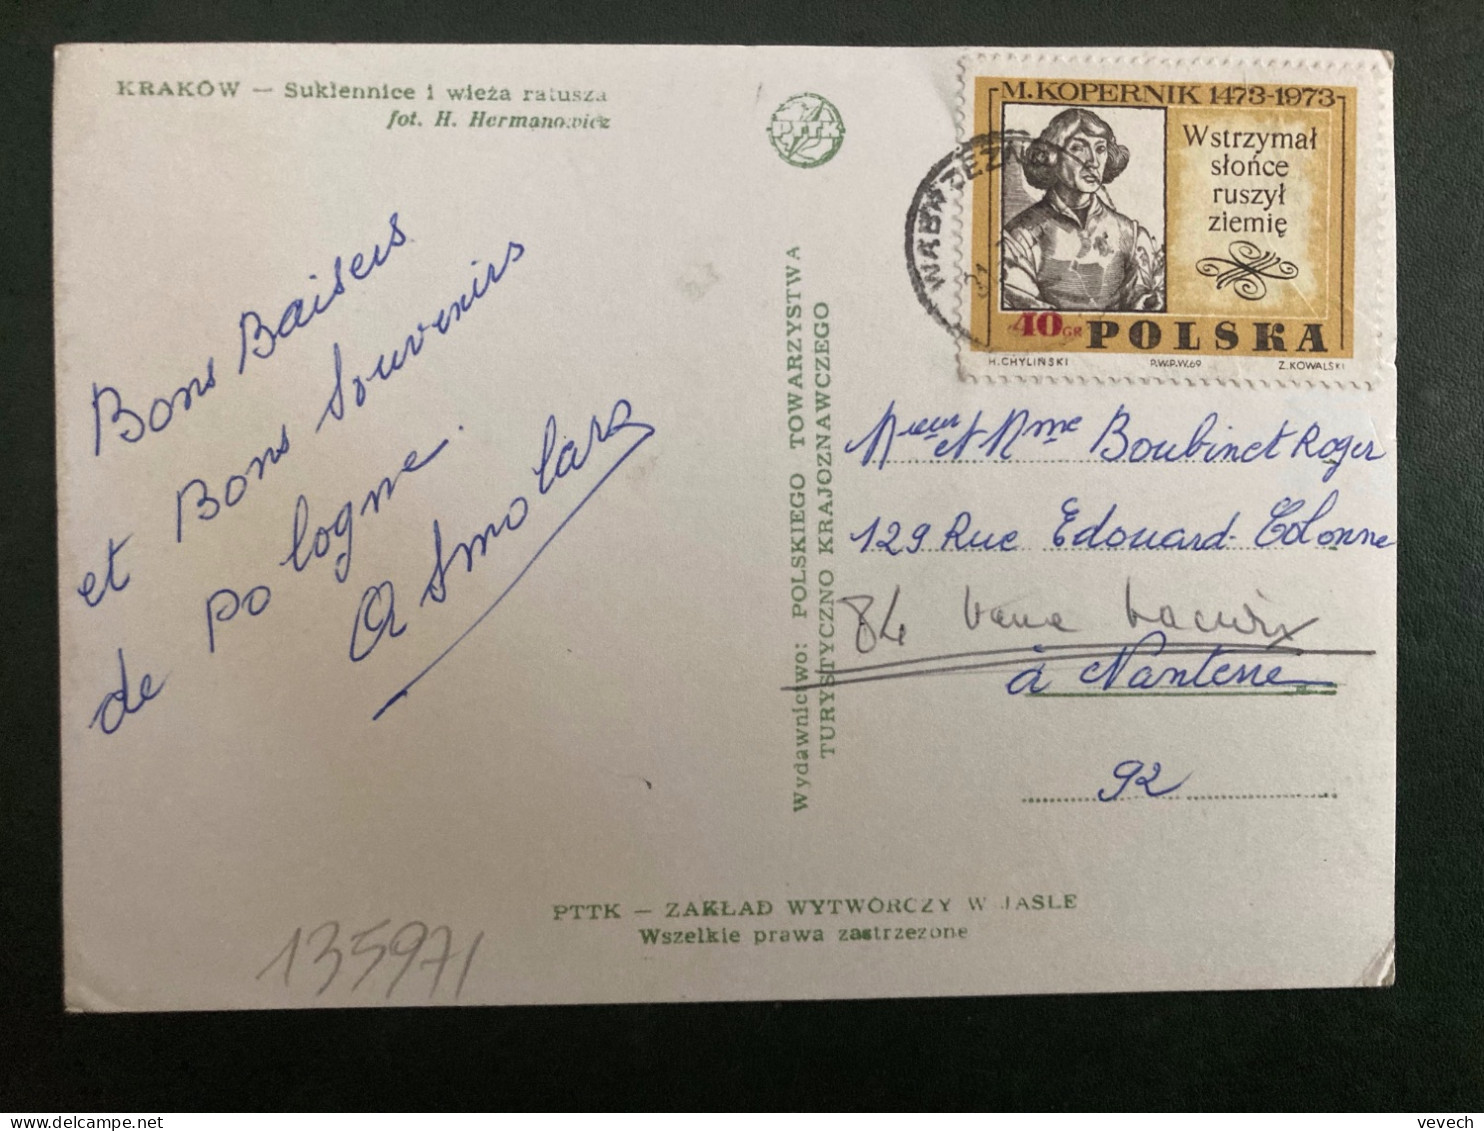 KRAKÓW — Sukiennice i wieża ratusza
fot. H. Hermanowicz
PTTK
M.KOPERNIK 1473-1973
Wstrzymał
słońce
ruszył
ziemię
40 GR POLSKA
H.CHYLIŃSKI P.W.P.W.69 Z.KOWALSKI
WĄBRZEŹNO
Bons Baisers
et Bons Souvenirs
de Pologne.
Wydawnictwo: POLSKIEGO TOWARZYSTWA
TURYSTYCZNO KRAJOZNAWCZEGO
et Mme Boubinet Roger
129 Rue Edouard Colonne
84
à Nanterre
92
PTTK — ZAKŁAD WYTWÓRCZY W JAŚLE
Wszelkie prawa zastrzeżone
135971
vevech